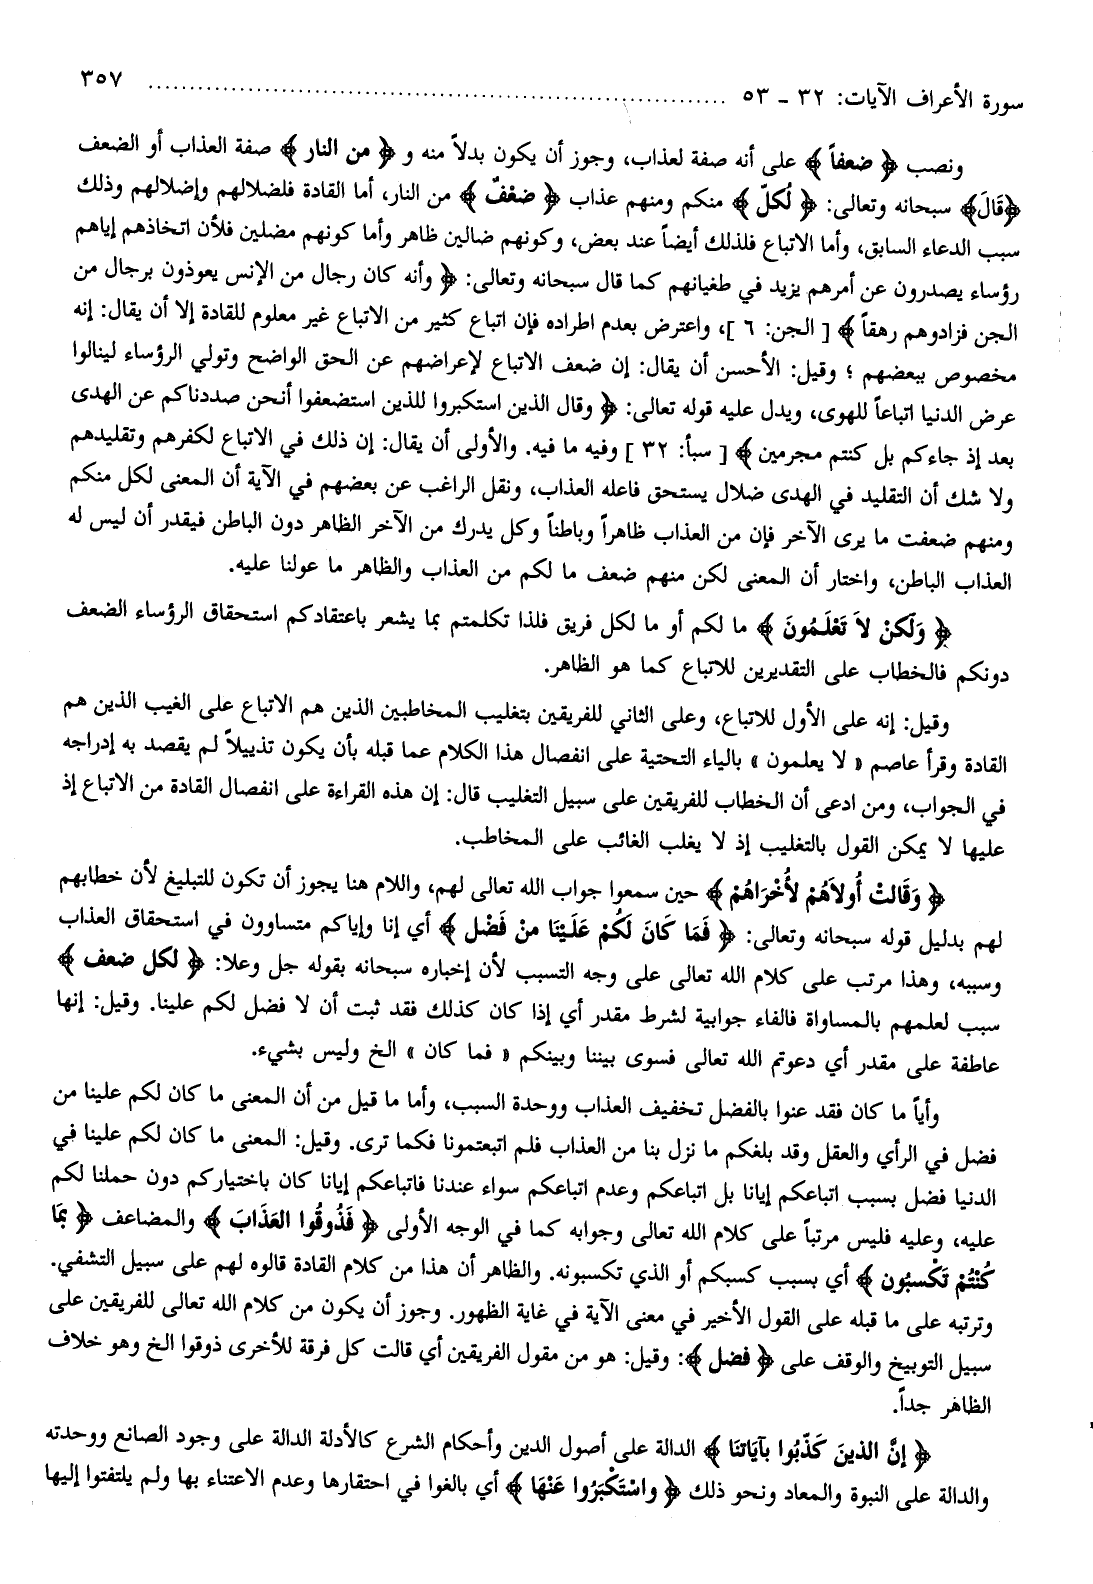 سورة الأعراف الآيات: ٣٢ - ٥٣ ........................................ ٣٥٧
ونصب ﴿ ضعفاً ﴾ على أنه صفة لعذاب، وجوز أن يكون بدلاً منه و ﴿ من النار ﴾ صفة العذاب أو الضعف
﴿قَالَ﴾ سبحانه وتعالى: ﴿ لُكلّ ﴾ منكم ومنهم عذاب ﴿ ضعْفٌ ﴾ من النار، أما القادة فلضلالهم وإضلالهم وذلك
سبب الدعاء السابق، وأما الاتباع فلذلك أيضاً عند بعض، وكونهم ضالين ظاهر وأما كونهم مضلين فلأن اتخاذهم إياهم
رؤساء يصدرون عن أمرهم يزيد في طغيانهم كما قال سبحانه وتعالى: ﴿ وأنه كان رجال من الإنس يعوذون برجال من
الجن فزادوهم رهقاً ﴾ [ الجن: ٦ ]، واعترض بعدم اطراده فإن اتباع كثير من الاتباع غير معلوم للقادة إلا أن يقال: إنه
مخصوص ببعضهم ؛ وقيل: الأحسن أن يقال: إن ضعف الاتباع لإعراضهم عن الحق الواضح وتولي الرؤساء لينالوا
عرض الدنيا اتباعاً للهوى، ويدل عليه قوله تعالى: ﴿ وقال الذين استكبروا للذين استضعفوا أنحن صددناكم عن الهدى
بعد إذ جاءكم بل كنتم مجرمين ﴾ [ سبأ: ٣٢ ] وفيه ما فيه. والأولى أن يقال: إن ذلك في الاتباع لكفرهم وتقليدهم
ولا شك أن التقليد في الهدى ضلال يستحق فاعله العذاب، ونقل الراغب عن بعضهم في الآية أن المعنى لكل منكم
ومنهم ضعفت ما يرى الآخر فإن من العذاب ظاهراً وباطناً وكل يدرك من الآخر الظاهر دون الباطن فيقدر أن ليس له
العذاب الباطن، واختار أن المعنى لكن منهم ضعف ما لكم من العذاب والظاهر ما عولنا عليه.
﴿ وَلَكنْ لاَ تَعْلَمُونَ ﴾ ما لكم أو ما لكل فريق فلذا تكلمتم بما يشعر باعتقادكم استحقاق الرؤساء الضعف
دونكم فالخطاب على التقديرين للاتباع كما هو الظاهر.
وقيل: إنه على الأول للاتباع، وعلى الثاني للفريقين بتغليب المخاطبين الذين هم الاتباع على الغيب الذين هم
القادة وقرأ عاصم « لا يعلمون » بالياء التحتية على انفصال هذا الكلام عما قبله بأن يكون تذييلاً لم يقصد به إدراجه
في الجواب، ومن ادعى أن الخطاب للفريقين على سبيل التغليب قال: إن هذه القراءة على انفصال القادة من الاتباع إذ
عليها لا يمكن القول بالتغليب إذ لا يغلب الغائب على المخاطب.
﴿ وَقَالتْ أُولاَهُمْ لأُخْرَاهُمْ ﴾ حين سمعوا جواب الله تعالى لهم، واللام هنا يجوز أن تكون للتبليغ لأن خطابهم
لهم بدليل قوله سبحانه وتعالى: ﴿ فَمَا كَانَ لَكُمْ عَلَيْنَا منْ فَضْل ﴾ أي إنا وإياكم متساوون في استحقاق العذاب
وسببه، وهذا مرتب على كلام الله تعالى على وجه التسبب لأن إخباره سبحانه بقوله جل وعلا: ﴿ لكل ضعف ﴾
سبب لعلمهم بالمساواة فالفاء جوابية لشرط مقدر أي إذا كان كذلك فقد ثبت أن لا فضل لكم علينا. وقيل: إنها
عاطفة على مقدر أي دعوتم الله تعالى فسوى بيننا وبينكم « فما كان » الخ وليس بشيء.
وأياً ما كان فقد عنوا بالفضل تخفيف العذاب ووحدة السبب، وأما ما قيل من أن المعنى ما كان لكم علينا من
فضل في الرأي والعقل وقد بلغكم ما نزل بنا من العذاب فلم اتبعتمونا فكما ترى. وقيل: المعنى ما كان لكم علينا في
الدنيا فضل بسبب اتباعكم إيانا بل اتباعكم وعدم اتباعكم سواء عندنا فاتباعكم إيانا كان باختياركم دون حملنا لكم
عليه، وعليه فليس مرتباً على كلام الله تعالى وجوابه كما في الوجه الأولى ﴿ فَذُوقُوا العَذَابَ ﴾ والمضاعف ﴿ بمَا
كُنْتُمْ تَكْسبُون ﴾ أي بسبب كسبكم أو الذي تكسبونه. والظاهر أن هذا من كلام القادة قالوه لهم على سبيل التشفي.
وترتبه على ما قبله على القول الأخير في معنى الآية في غاية الظهور. وجوز أن يكون من كلام الله تعالى للفريقين على
سبيل التوبيخ والوقف على ﴿ فضل ﴾: وقيل: هو من مقول الفريقين أي قالت كل فرقة للأخرى ذوقوا الخ وهو خلاف
الظاهر جداً.
﴿ إنَّ الذينَ كَذّبُوا بآيَاتنَا ﴾ الدالة على أصول الدين وأحكام الشرع كالأدلة الدالة على وجود الصانع ووحدته
والدالة على النبوة والمعاد ونحو ذلك ﴿ واسْتَكْبَرُوا عَنْهَا ﴾ أي بالغوا في احتقارها وعدم الاعتناء بها ولم يلتفتوا إليها